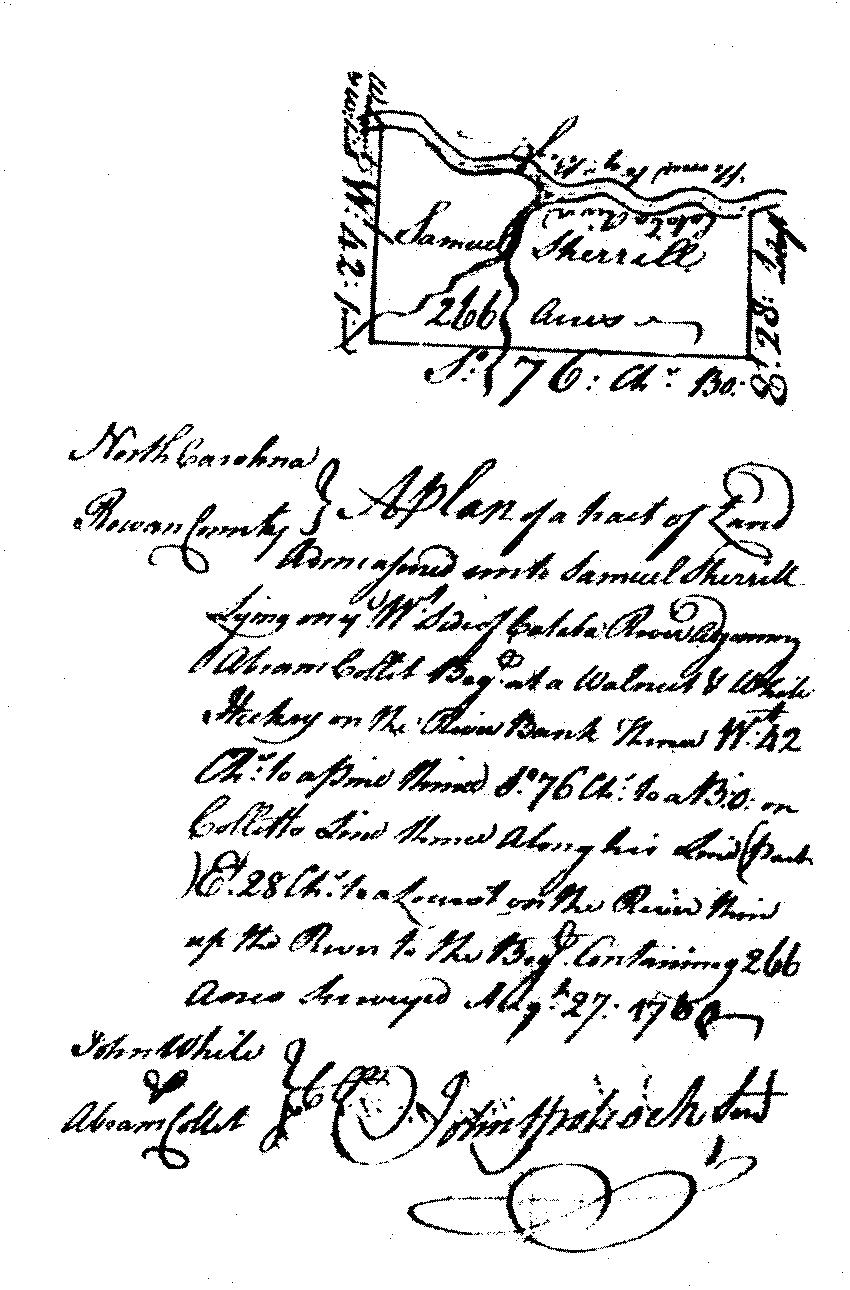 W: 42:
Samuel Sherrill
Cataba River
266 Acres
E.t 28:
So. 76: Chs. BO:
North Carolina
Rowan County
A plan of a tract of Land
Admeasured unto Samuel Sherrill
Lying on ye Wt. Side of Cataba River Adjoining
Abram Collet Beg.g at a Walnut & White
Hickory on the River Bank thence Wt. 42
Chs. to a pine thence So. 76 Chs. to a B:O: on
Colletts Line thence Along his Line (part
) Et. 28 Chs. to a Locust on the River then
up the River to the Beg.g Containing 266
Acres Surveyed 27.
John White
&
Abram Collet
CC
John